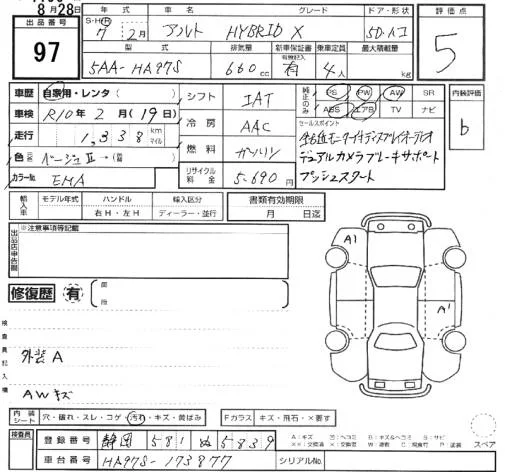 8月28日
出品番号
97
年式
車名
グレード
ドア・形状
評価点
S・H・R
7年2月
アルト
HYBRID X
5D・ハコ
5
型式
排気量
新車保証書
有無記入
乗車定員
最大積載量
5AA-HA97S
660cc
有
4人
kg
車歴
自家用・レンタ( )
シフト
IAT
純正のみ
PS PW AW SR
ABS エアB TV ナビ
内装評価
b
車検
R10年2月(19日)
冷房
AAC
セールスポイント
走行
1,338
km
マイル
燃料
ガソリン
全方位モニター付ディスプレイオーディオ
デュアルカメラブレーキサポート
プッシュスタート
色
ベージュⅡ→(
カラーNo.
EMA
リサイクル料金
5,690円
輸入車
モデル年式
ハンドル
輸入区分
書類有効期限
右H・左H
ディーラー・並行
月 日迄
出品店申告欄
※注意事項等記載
修復歴
有
箇所
検査員記入欄
外装A
AWキズ
A1
A1
内装シート
穴・破れ・スレ・コゲ・汚れ・キズ・黄ばみ
Fガラス
キズ・飛石・×要す
スペア
検査員
登録番号
静岡 581 ぬ 5839
車台番号
HA97S-173877
シリアルNo.